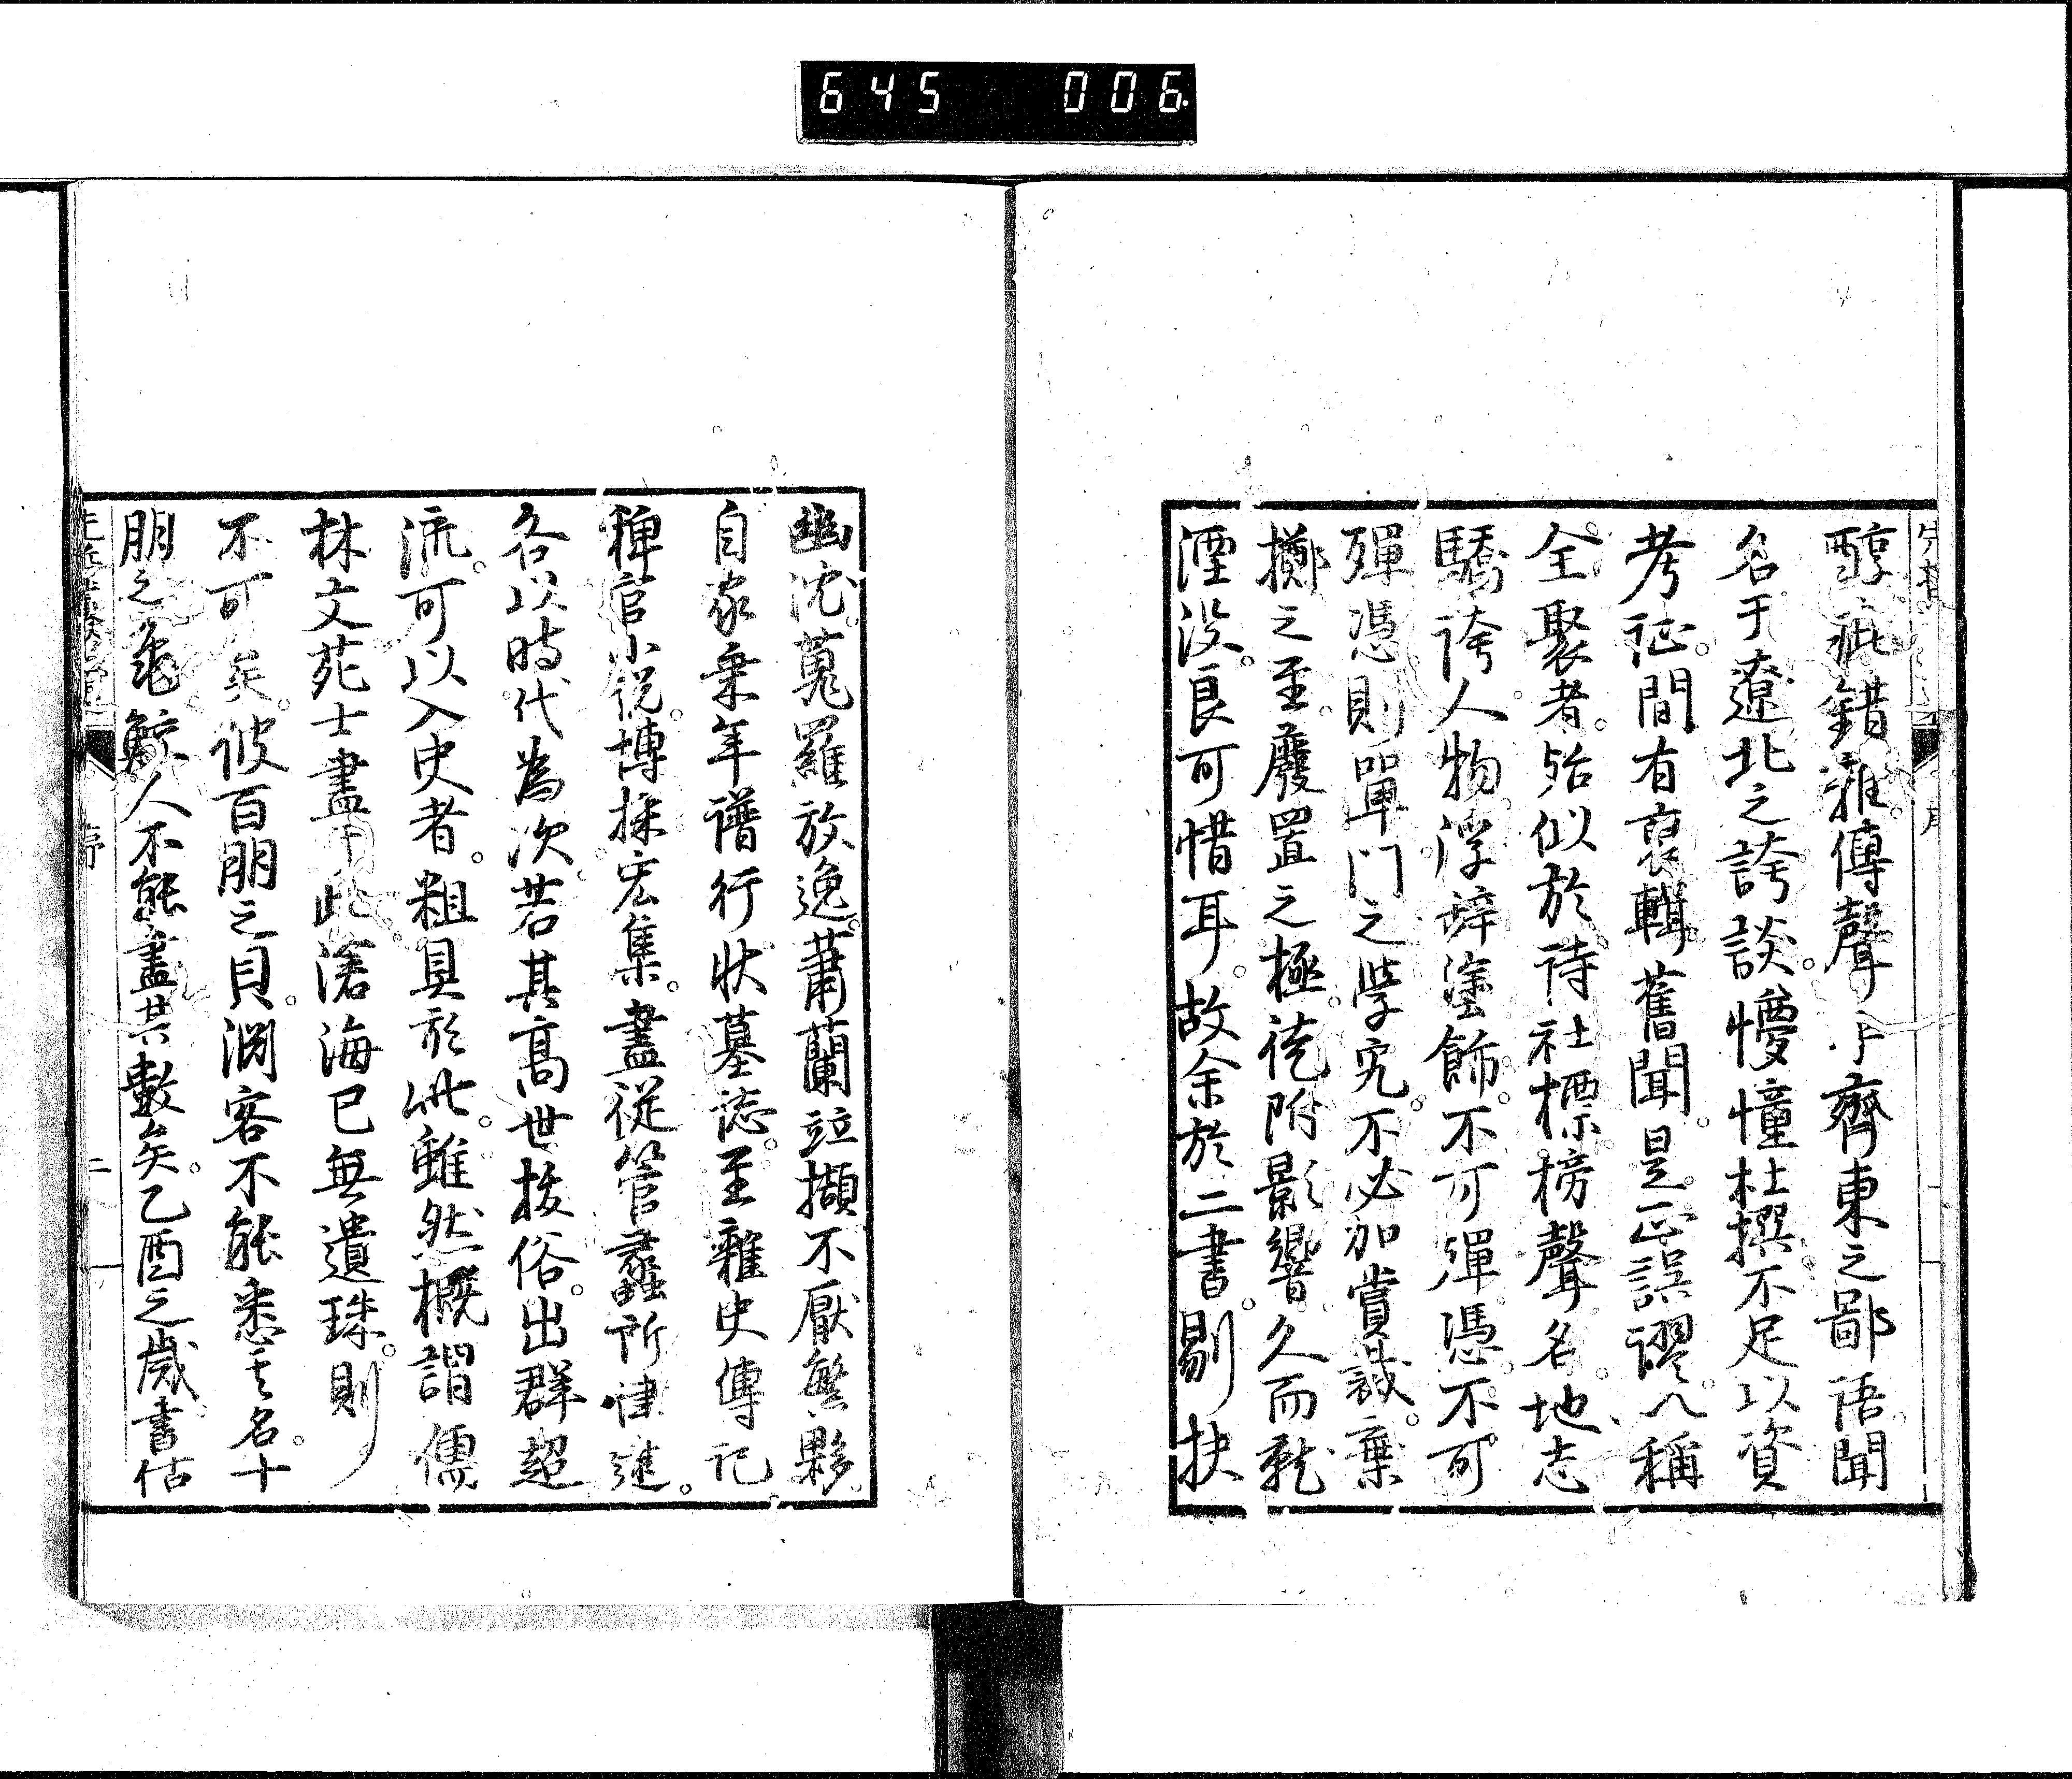 645 006
醇疵錯雜。傳聲于齊東之鄙語。聞
名于遼北之誇談。懮憧杜撰。不足以資
考證。間有裒輯舊聞。是正誤謬。人稱
全聚者。殆似於詩社標榜聲名。地志
驕誇人物。浮辭塗飾。不可殫憑。不可
殫憑則單門之學究。不必加賞識。棄
擲之至。廢置之極。徒附影響。久而就
湮没。良可惜耳。故余於二書。剔抉
幽沈。蒐羅放逸。蕭蘭竝擷。不厭繁夥。
自家乗年譜行状墓誌。至雜史傳記
稗官小説。博採宏集。盡從管蠡所建進。
各以時代為次。若其高世抜俗。出群超
流。可以入史者。粗具於此。雖然概謂儒
林文苑士盡于此。滄海已無遺珠。則
不可矣。彼百朋之貝。淵客不能悉其名。十
朋之龜。鮫人不能盡其數矣。乙酉之歳。書估
序 二